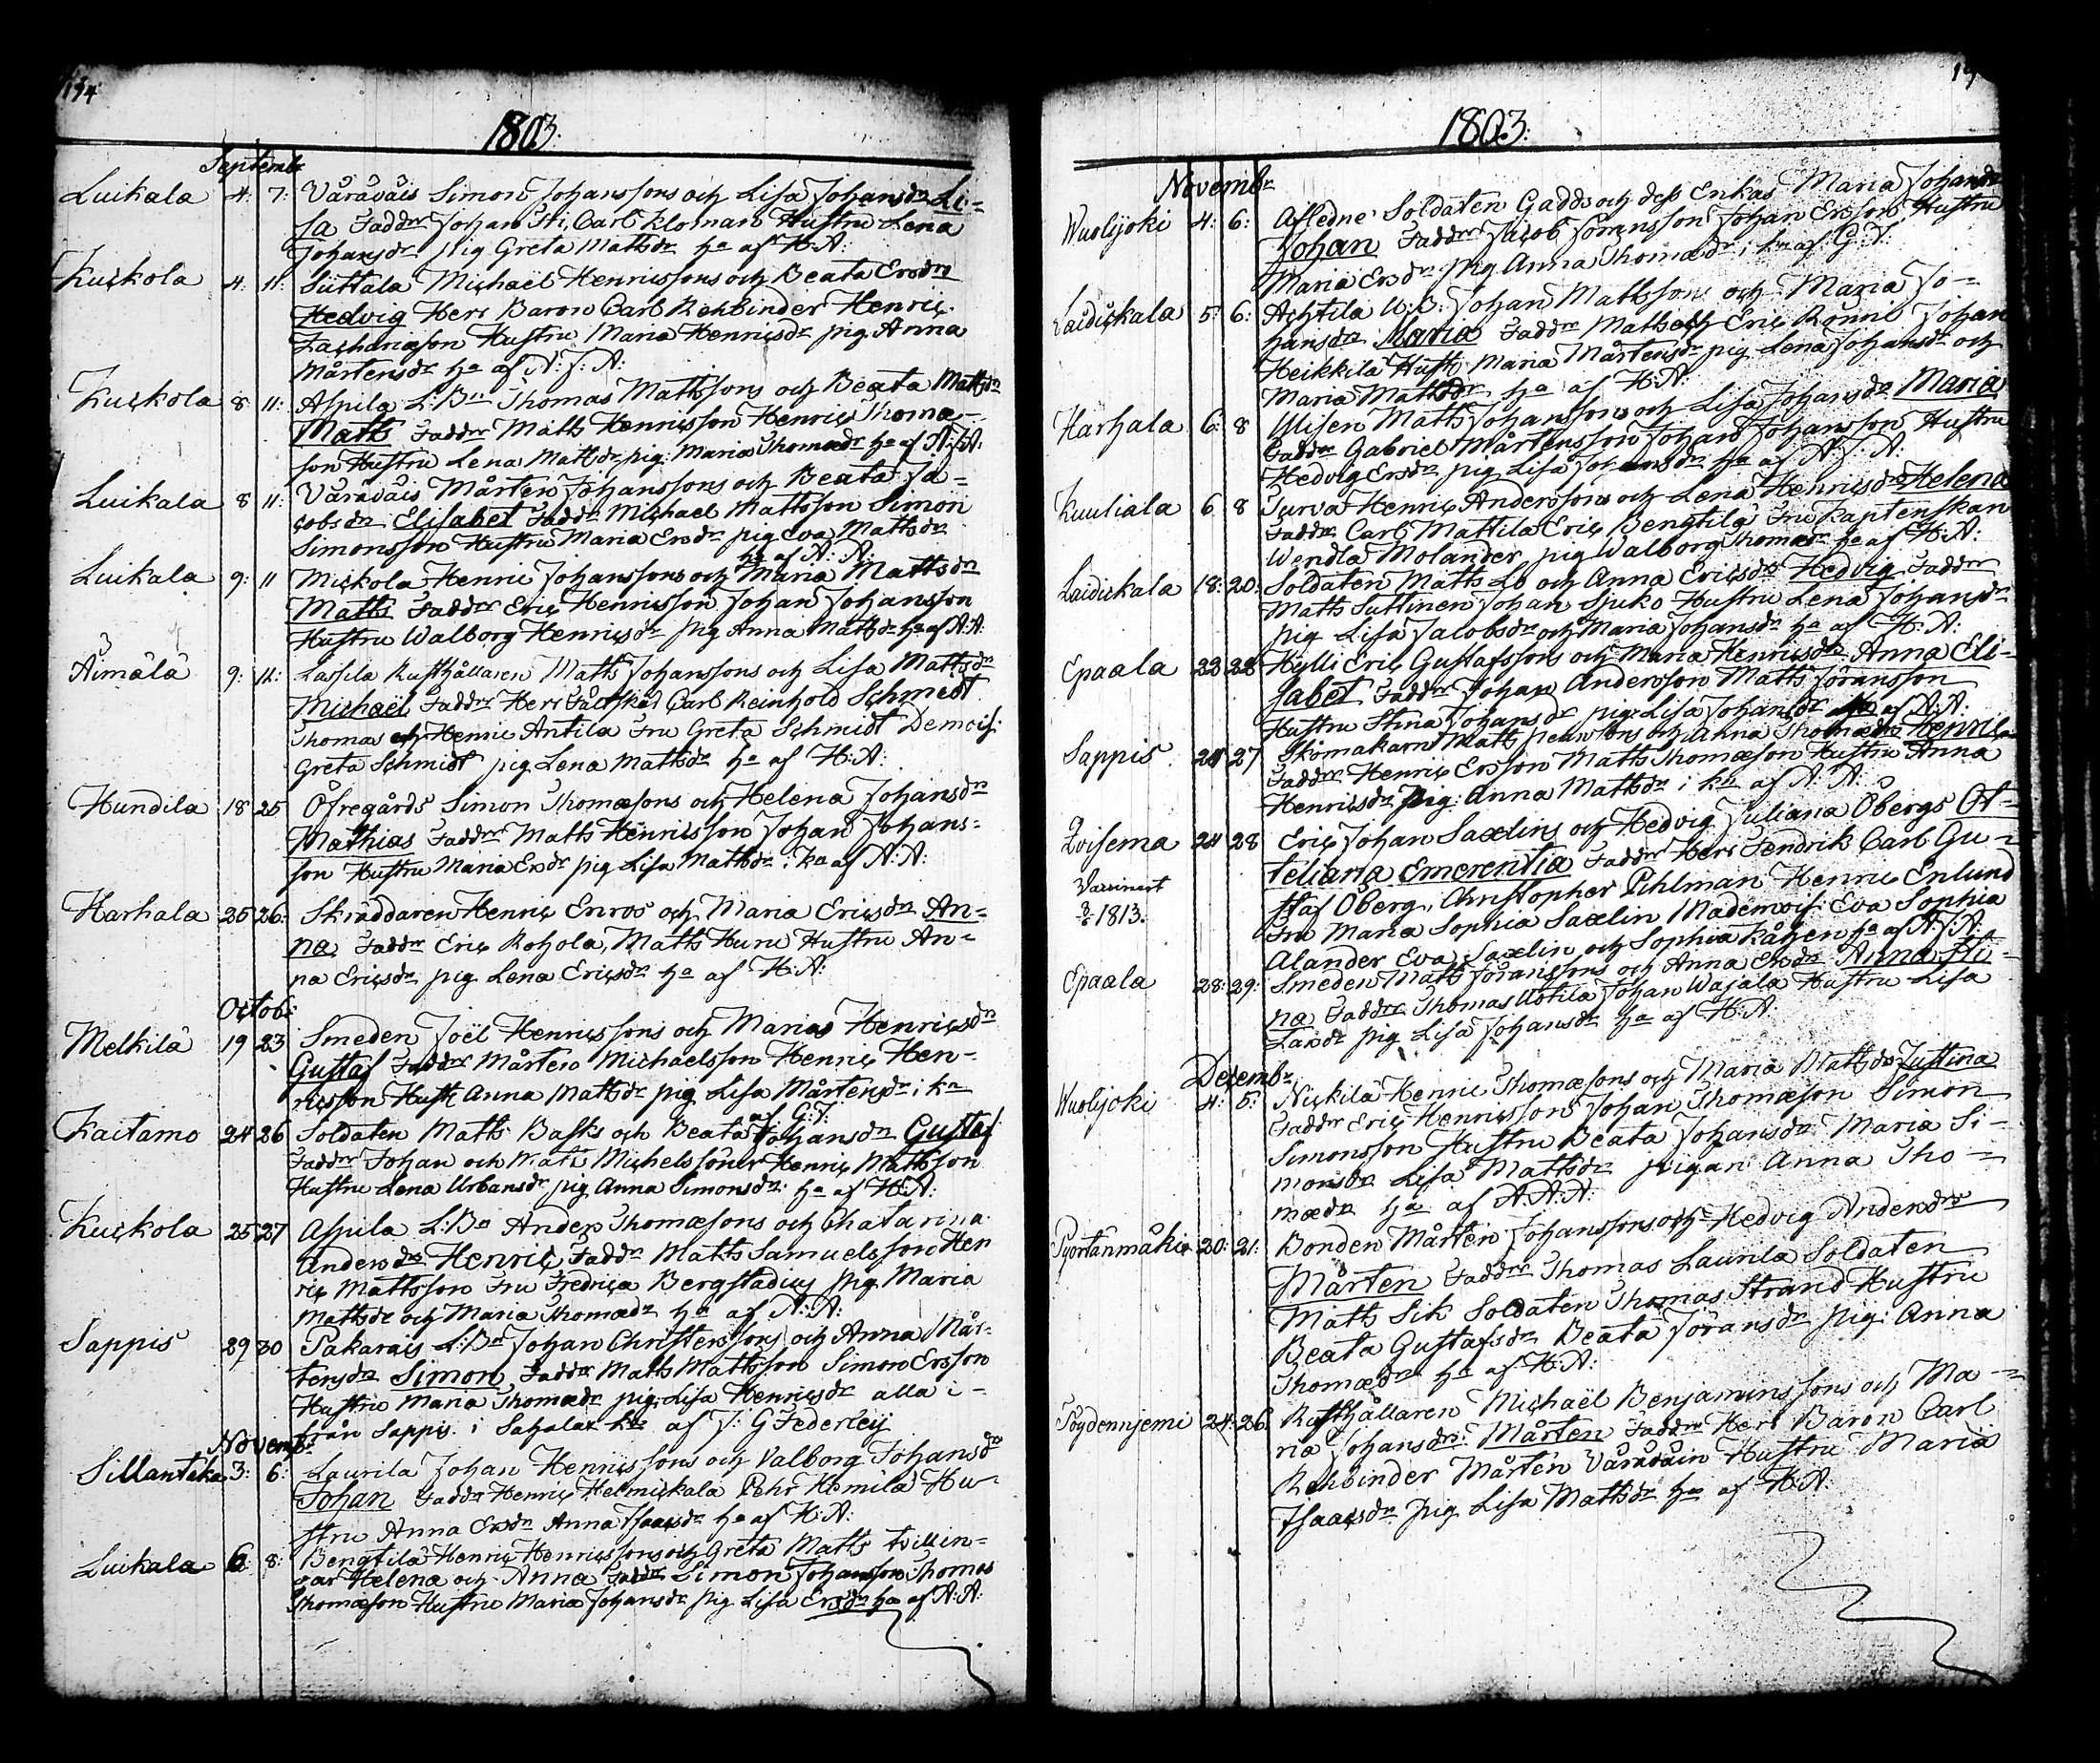 194
1803.
Septembr
Luikala 4: 7: Wäräväis Simon Johanssons och Lisa Johansdrs Li-
sa Faddr Johan Iti, Carl Klomars Hustru Lena
Johansdr pig Greta Mattsdr ha af H:A:
Kuckola 4. 11: Süttala Michaël Henricssons och Beata Ersdrs
Hedvig Herr Baron Carl Rehbinder Henric
Zachariæson Hustru Maria Henricsdr pig Anna
Mårtensdr ha af A: J: A:
Kuckola 8 11: Aspila L:Bn Thomas Mattssons och Beata Mattsdrs
Matts Faddrr Matts Henricsson Henric Thomæ-
son Hustru Lena Mattsdr pig: Maria Thomædr ha af A:J:A:
Luikala 8 11: Wäräväis Mårten Johanssons och Beata Ja-
cobsdrs Elisabet Faddr Michael Mattsson Simon
Simonsson Hustru Maria Ersdr pig Eva Mattsdr
ha af A: A:
Luikala 9: 11 Mickola Henric Johanssons och Maria Mattsdrs
Matts Faddrr Eric Henricsson Johan Johansson
Hustru Walborg Henricsdr pig Anna Mattsdr ha af A:A:
Äimälä 9: 12: Lassila Rusthållaren Matts Johanssons och Lisa Mattsdrs
Michaël Faddrr Herr Fältskär Carl Reinhold Schmidt
Thomas och Henric Antila Fru Greta Schmidt Demois:
Greta Schmidt pig Lena Mattsdr ha af H:A:
Hundila 18 25 Öfregårds Simon Thomæsons och Helena Johansdrs
Mathias Faddrr Matts Henricsson Johan Johans-
son Hustru Maria Ersdr pig Lisa Mattsdr i ka af A:A:
Harhala 25 26: Skräddaren Henric Enros och Maria Ericsdrs An-
na Faddrr Eric Rohola, Matts Huru Hustru An-
na Ericsdr pig Lena Ericsdr ha af H:A:
Octob:
Melkilä 19 23 Smeden Joël Henricssons och Marias Henricsdrs
Gustaf Faddrr Mårten Michaelsson Henric Hen-
ricsson Hustr Anna Mattsdr pig Lisa Mårtensdr i ka
af G:F:
Kaitamo 24 26 Soldaten Matts Basks och Beata Johansdrs Gustaf
Faddrr Johan och Matts Michelssöner Henric Mattsson
Hustru Lena Urbansdr pig Anna Simonsdr: ha af H:A:
Kuckola 25 27 Aspila L:Bn Anders Thomæsons och Chatarina
Andersdrs Henric Faddr Matts Samuelsson Hen
ric Mattsson Fru Fredrica Bergstadius pig Maria
Mattsdr och Maria Thomædr ha af A:A:
Sappis 29 30 Pakarais L:Bn Johan Christerssons och Anna Mår-
tensdrs Simon Faddrr Matts Mattsson Simon Ersson
Hustru Maria Thomædr pig Lisa Henricsdr alla i-
från Sappis i Sahalax ka af J: G Federley
Novemb:
Sillantaka 3: 6: Laurila Johan Henricssons och Valborg Johansdrs
Johan Faddr Henric Helmickala Pehr Komila Hu-
stru Anna Ersdr Anna Isaacsdr ha af H:A:
Luikala 6: 8: Bengtilä Henric Henricssons och Greta Matts tvillin-
gar Helena och Anna Faddr Simon Johansson Thomas
Thomæson Hustru Maria Johansdr pig Lisa Ersdr ha af A:A:
1803.
Novembr
Wuolijoki 4: 6: Afledne Soldaten Gadds och dess Enkas Maria Johansdrs
Johan Faddrr Jacob Göransson Johan Ersson Hustru
Maria Ersdr pig Anna Thomædr i ka af G:F:
Laidickala 5: 6: Achtila U:B: Johan Mattssons och Maria Jo-
hansdrs Maria Faddrr Matts och Eric Rönni Johan
Heikkilä Hustr. Maria Mårtensdr pig Lena Johansdr och
Maria Mattsdr ha af H:A:
Harhala 6: 8 Ylisen Matts Johanssons och Lisa Johansdrs Maria
Faddrr Gabriel Mårtensson Johan Johansson Hustru
Hedvig Ersdr pig Lisa Johansdr ha af A:J:A:
Kuuliala 6 8 Turva Henric Anderssons och Lena Henricsdrs Helena
Faddrr Carl Mattila Eric Bengtilä Fru Kaptenskan
Wendla Molander pig Walborg Thomædr ha af H:A:
Laidickala 18: 20: Soldaten Matts Lo och Anna Ericsdrs Hedvig Faddrr
Matts Suttinen Johan Sjuko Hustru Lena Johansdr
pig Lisa Jacobsdr och Maria Johansdr ha af H:A:
Epaala 23 28 Hylli Eric Gustafssons och Maria Henricsdrs Anna Eli-
sabet Faddrr Johan Andersson Matts Göransson
Hustru Stina Johansdr pig Lisa Johansdr ha af A:A:
Sappis 24 27 Skomakarn Matts och Anna Thomædrs Henric
Faddrr Henric Ersson Matts Thomæson Hustru Anna
Henricsdr pig: Anna Mattsdr i ka af A:A:
Qvisema 24 28 Eric Johan Saxlins och Hedvig Juliana Öbergs Ot-
teliana Emerentia Faddrr Herr Fendrik Carl Gu-
Vaccinert 3/2 1813.
staf Öberg, Christopher Pihlman Henric Enlund
Fru Maria Sophia Saxlin Mademois: Eva Sophia
Alander Eva Saxlin och Sophia Kåhen ha af A:J:A:
Epaala 28: 29: Smeden Matts Göranssons och Anna Ersdrs Anna Sti-
na Faddrr Thomas Uotila Johan Wajala Hustru Lisa
Larsdr pig Lisa Johansdr ha af H:A:
Decembr
Wuolijoki 4: 5: Nickilä Henric Thomæsons och Maria Mattsdrs Justina
Faddrr Eric Henricsson Johan Thomæson Simon
Simonsson Hustru Beata Johansdr Maria Si-
monsdr Lisa Mattsdr pigan Anna Tho-
mædr ha af A:A:A:
Pyörtänmäki 20: 21: Bonden Mårten Johanssons och Hedvig Andersdrs
Mårten Faddrr Thomas Laurila Soldaten
Matts Sik Soldaten Thomas Strand Hustru
Beata Gustafsdr Beata Göransdr pig: Anna
Thomædr ha af H:A:
Tögdennjemi 24: 26: Rusthållaren Michaël Benjaminssons och Ma-
ria Johansdrs: Mårten Faddrr Herr Baron Carl
Rehbinder Mårten Väräväin Hustru Maria
Isaacsdr pig Lisa Mattsdr ha af H:A: